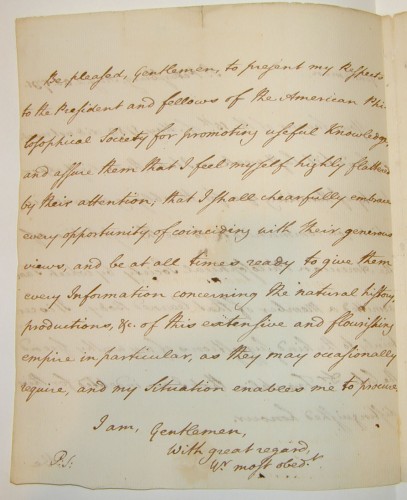 Be pleased, Gentlemen, to present my Respects
to the President and fellows of the American Phi
losophical Society for promoting useful Knowledge,
and assure them that I feel myself highly flattered
by their attention; that I shall chearfully embrace
every opportunity of coinciding with their generous
views, and be at all times ready to give them
every Information concerning the natural history,
productions, &c. of this extensive and flourishing
empire in particular, as they may occasionally
require, and my Situation enables me to procure.
I am, Gentlemen,
With great regard,
Yr. most obedt.
P.S.